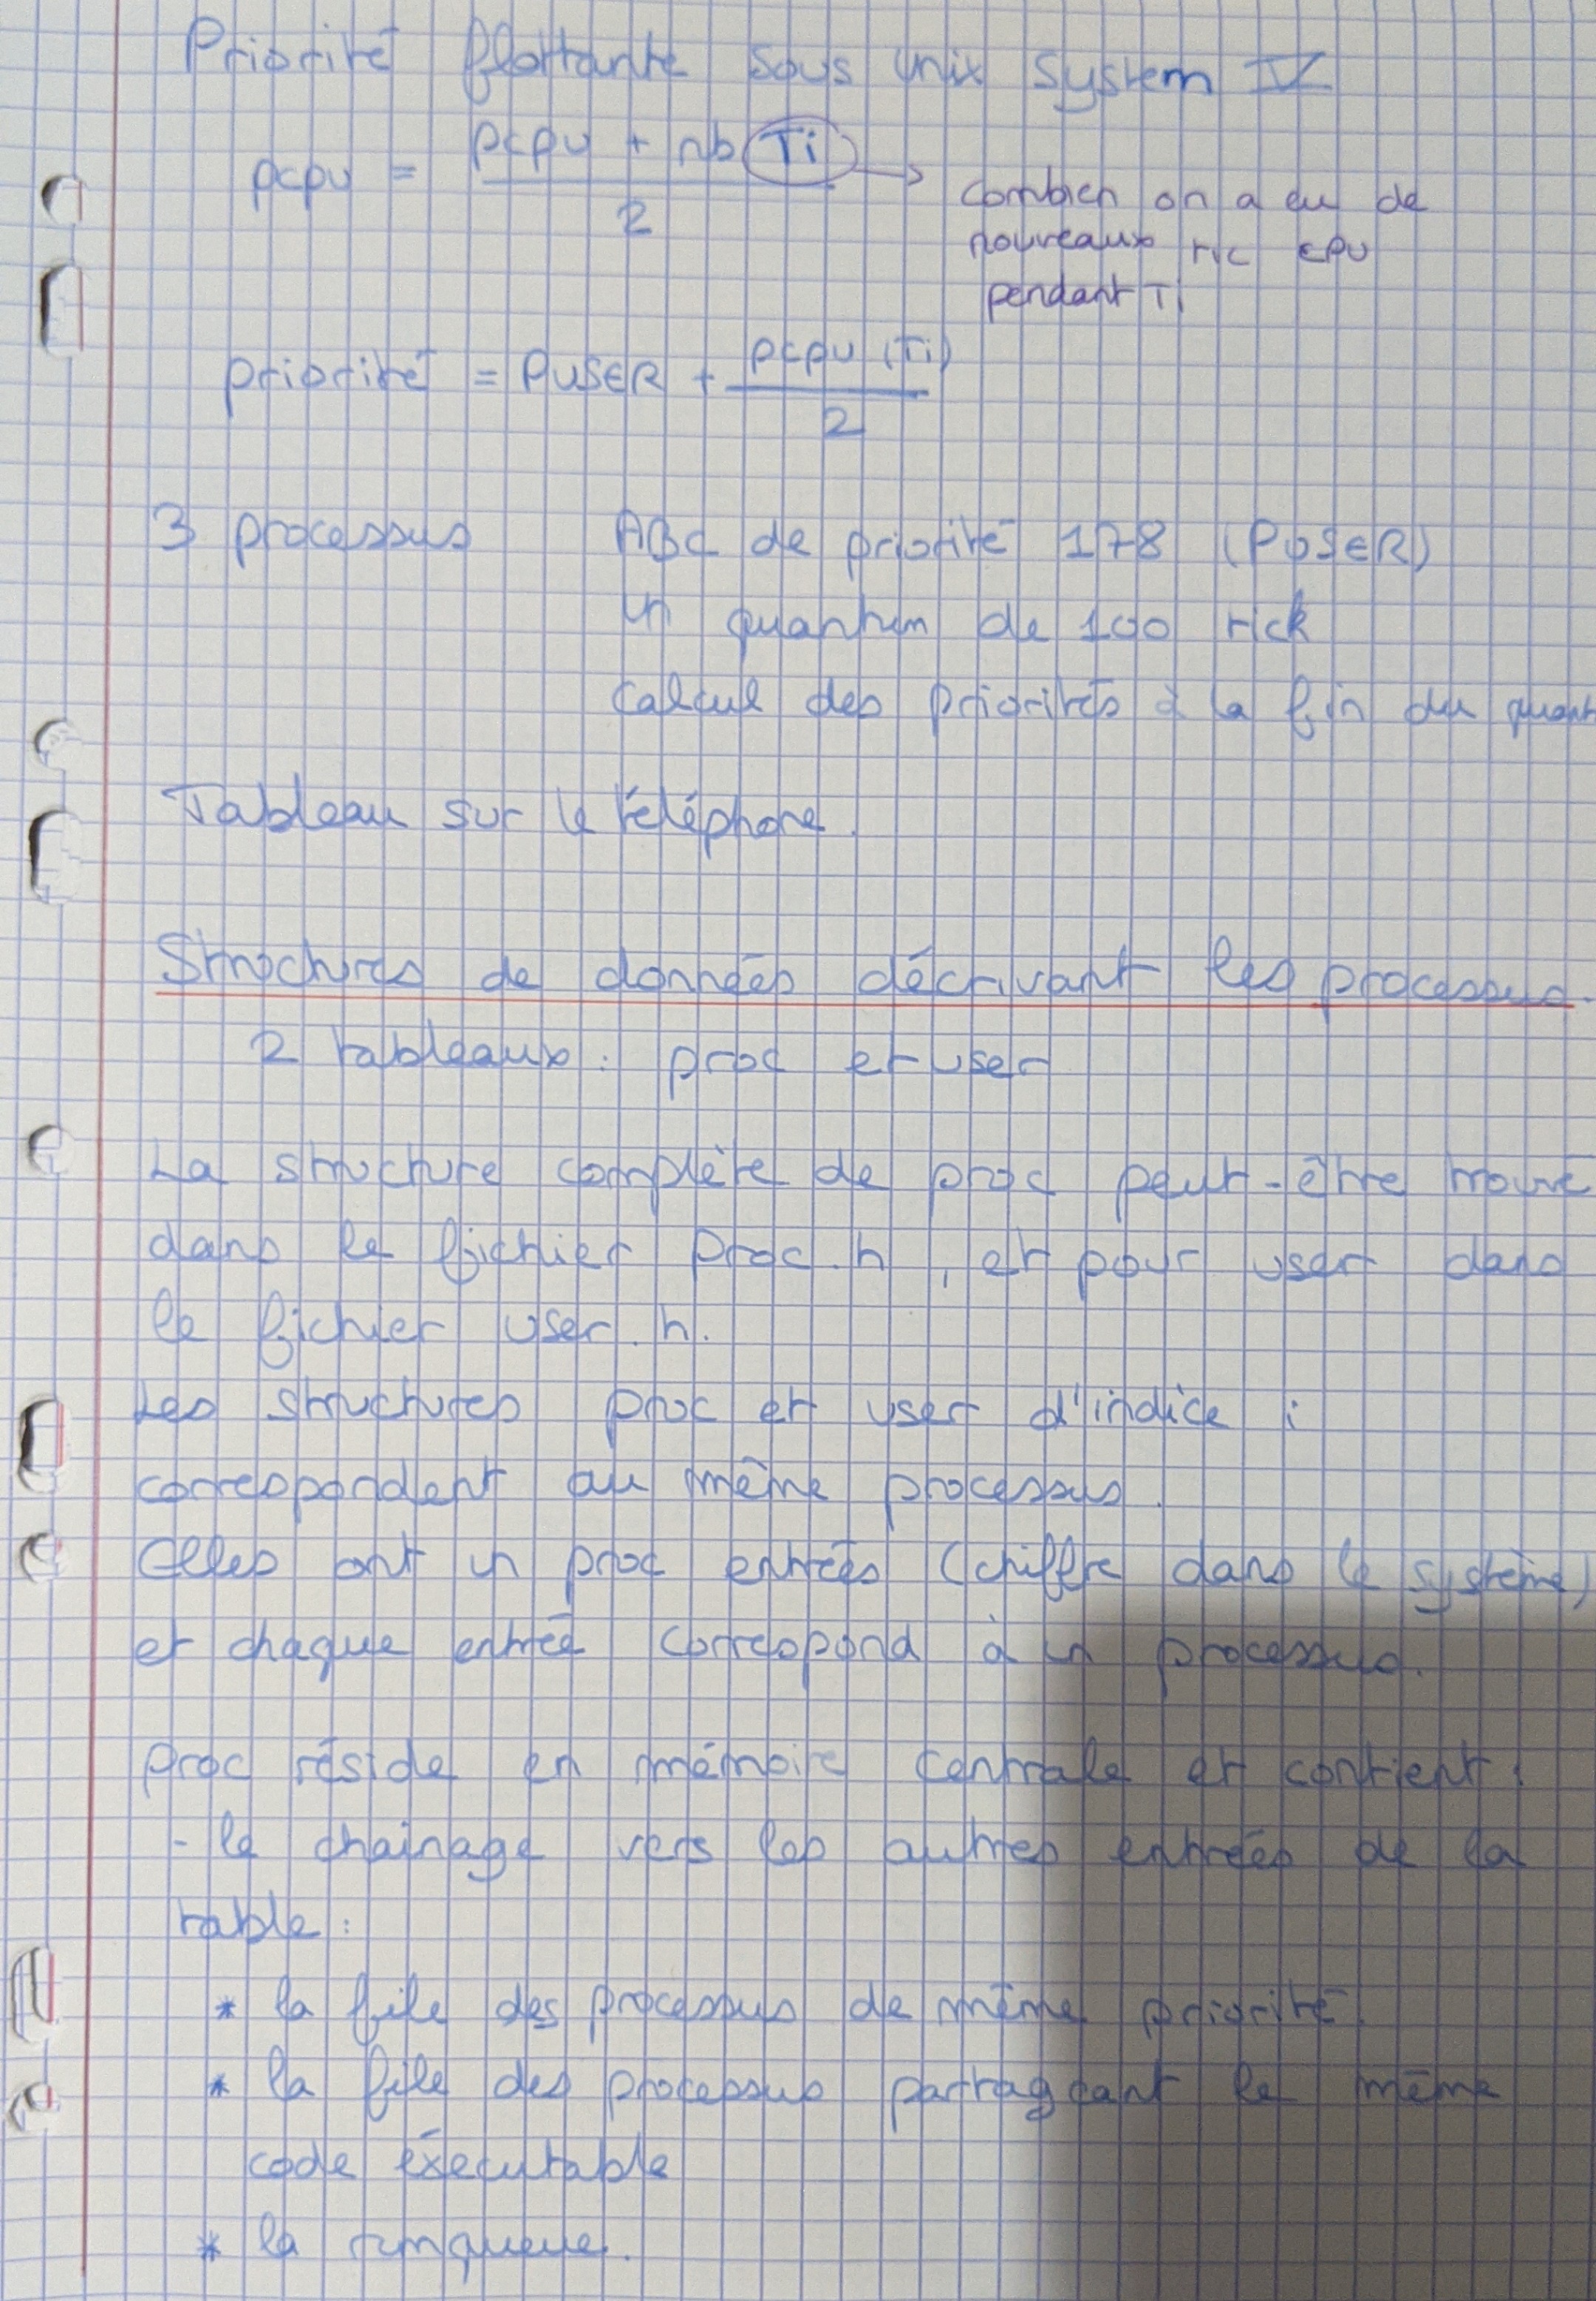 Priorité flottante sous Unix System V
pcpu = pcpu + nb Ti / 2 → combien on a eu de
nouveaux tic CPU
pendant Ti
priorité = PUSER + pcpu (Ti) / 2
3 processus ABC de priorité 178 (PUSER)
un quantum de 100 tick
calcul des priorités à la fin du quant
Tableau sur le téléphone.
Structures de données décrivant les processus.
2 tableaux : proc et user
La structure complète de proc peut-être trouvé
dans le fichier proc.h, et pour user dans
le fichier user.h.
Les structures proc et user d'indice i
correspondent au même processus.
Elles ont un proc entrées (chiffre dans le système)
et chaque entrée correspond à un processus.
proc réside en mémoire centrale et contient :
- le chainage vers les autres entrées de la
table :
* la file des processus de même priorité.
* la file des processus partageant le même
code éxécutable
* la runqueue.